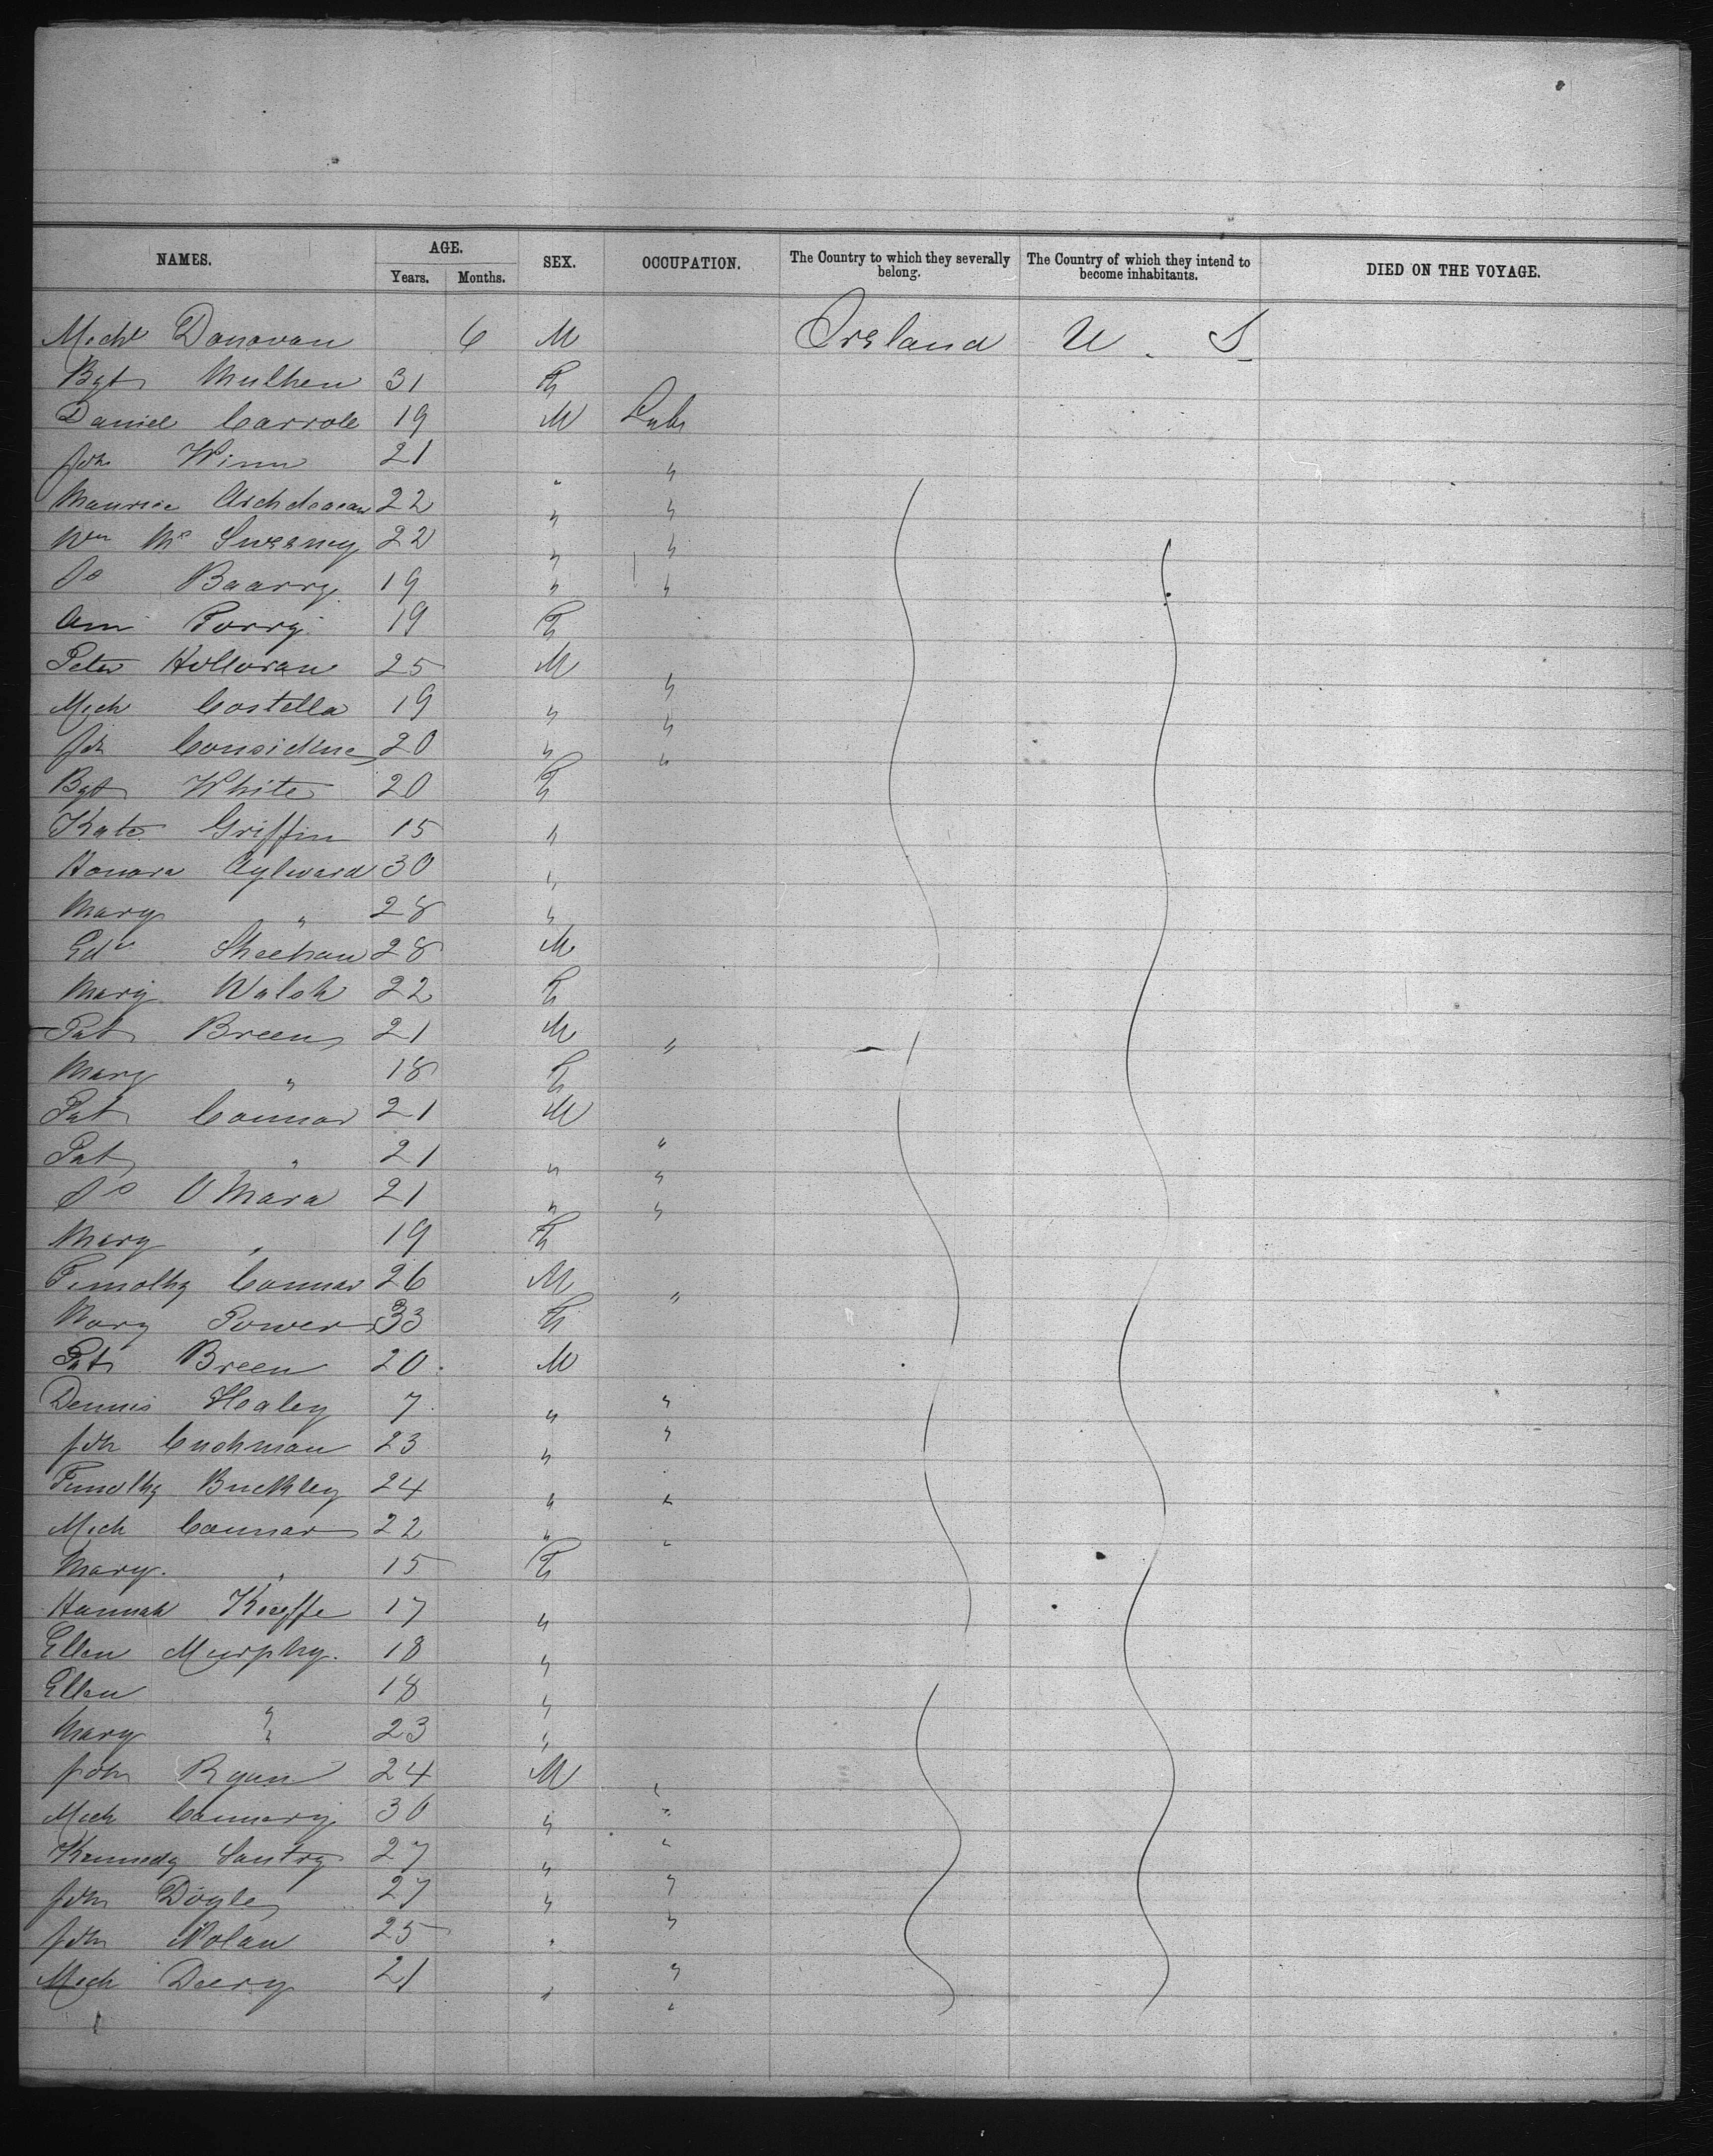 NAMES. AGE. SEX. OCCUPATION. The Country to which they severally belong. The Country of which they intend to become inhabitants. DIED ON THE VOYAGE.
Years. Months.
Michl Donovan 6 M Ireland U. S
Bgt Mulhen 31 F
Daniel Carrole 19 M Labr
Joh Winn 21 " "
Maurice Archdeacan 22 " "
Wm Mc Sweeney 22 " "
Do Baarry 19 " "
Ann Torry 19 F
Peter Holloran 25 M "
Mich Costella 19 " "
Joh Considine 20 " "
Bgt White 20 F
Kate Griffin 15 "
Honora Aylward 30 "
Mary " 28 "
Edw Sheehan 28 M
Mary Walsh 22 F
Pat Breen 21 M "
Mary " 18 F
Pat Connor 21 M "
Pat " 21 " "
Do O Mara 21 " "
Mary " 19 F
Timothy Connor 26 M "
Mary Power 33 F
Pat Breen 20 M
Dennis Healey 7 " "
Joh Cushman 23 " "
Timothy Buckley 24 " "
Mich Connor 22 " "
Mary " 15 F
Hannah Kieffe 17 "
Ellen Murphy. 18 "
Ellen " 18 "
Mary " 23 "
John Ryan 24 M "
Mich Connery 30 " "
Kennedy Santry 27 " "
John Doyle 27 " "
John Nolan 25 " "
Mich Deery 21 " "